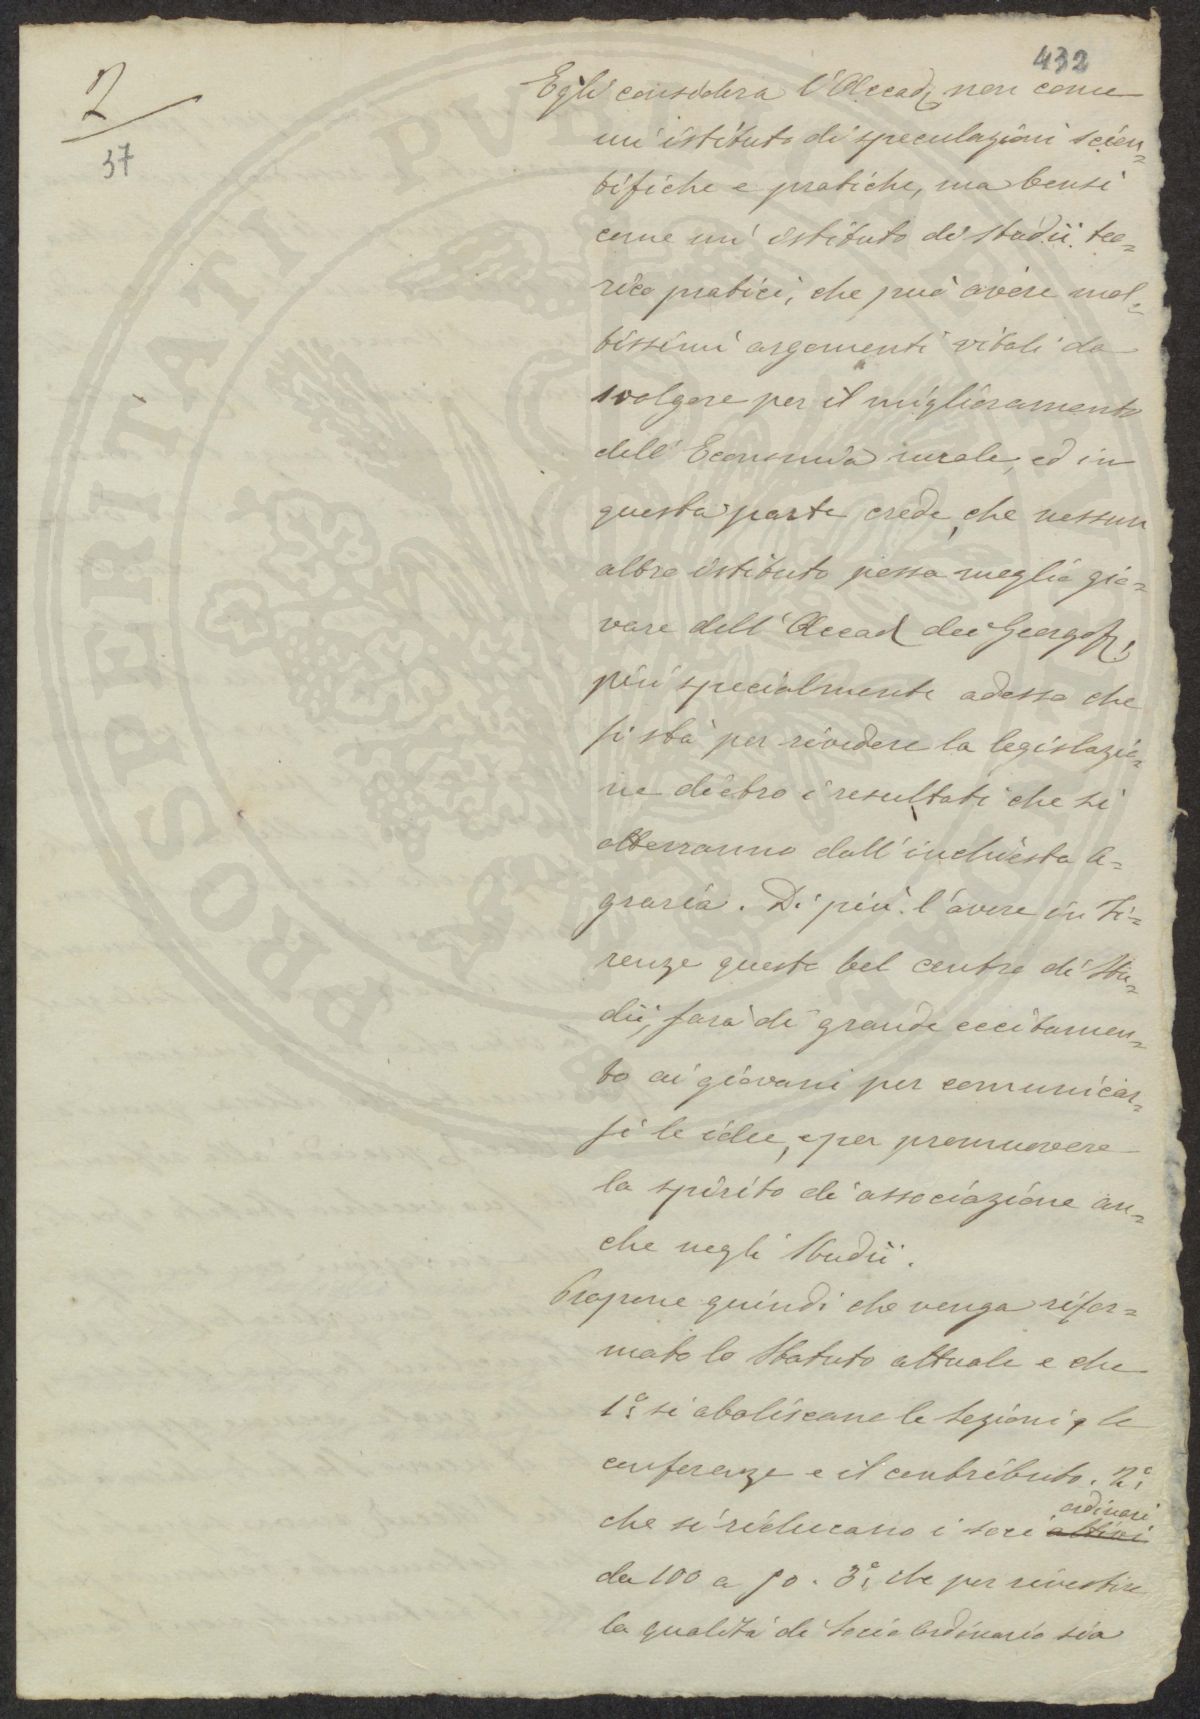 432
2
37
Egli considera l'Accad. non come
un' istituto di speculazioni scien=
tifiche e pratiche, ma bensì
come un' istituto di Studii teo=
rico pratici, che può avere mol=
tissimi argomenti vitali da
svolgere per il miglioramento
dell' Economia rurale, ed in
questa parte crede, che nessun
altro istituto possa meglio gio=
vare dell' Accad. dei Georgof.i
più specialmente adesso che
si sta per rivedere la legislazio=
ne dietro i resultati che si
otterranno dall' inchiesta a=
graria. Di più l'avere in Fi=
renze questo bel centro di Stu=
dii, sarà di grande eccitamen=
to ai giovani per comunicar=
si le idee, e per promuovere
lo spirito di associazione an=
che negli Studii.
Propone quindi che venga rifor=
mato lo Statuto attuale e che
1° si aboliscano le Sezioni, le
conferenze e il contributo. 2°
ordinari
che si riducano i soci attivi
da 100 a 50. 3° che per rivestire
la qualità di Socio Ordinario sia
PROSPERITATI PVBLICAE AVGENDAE